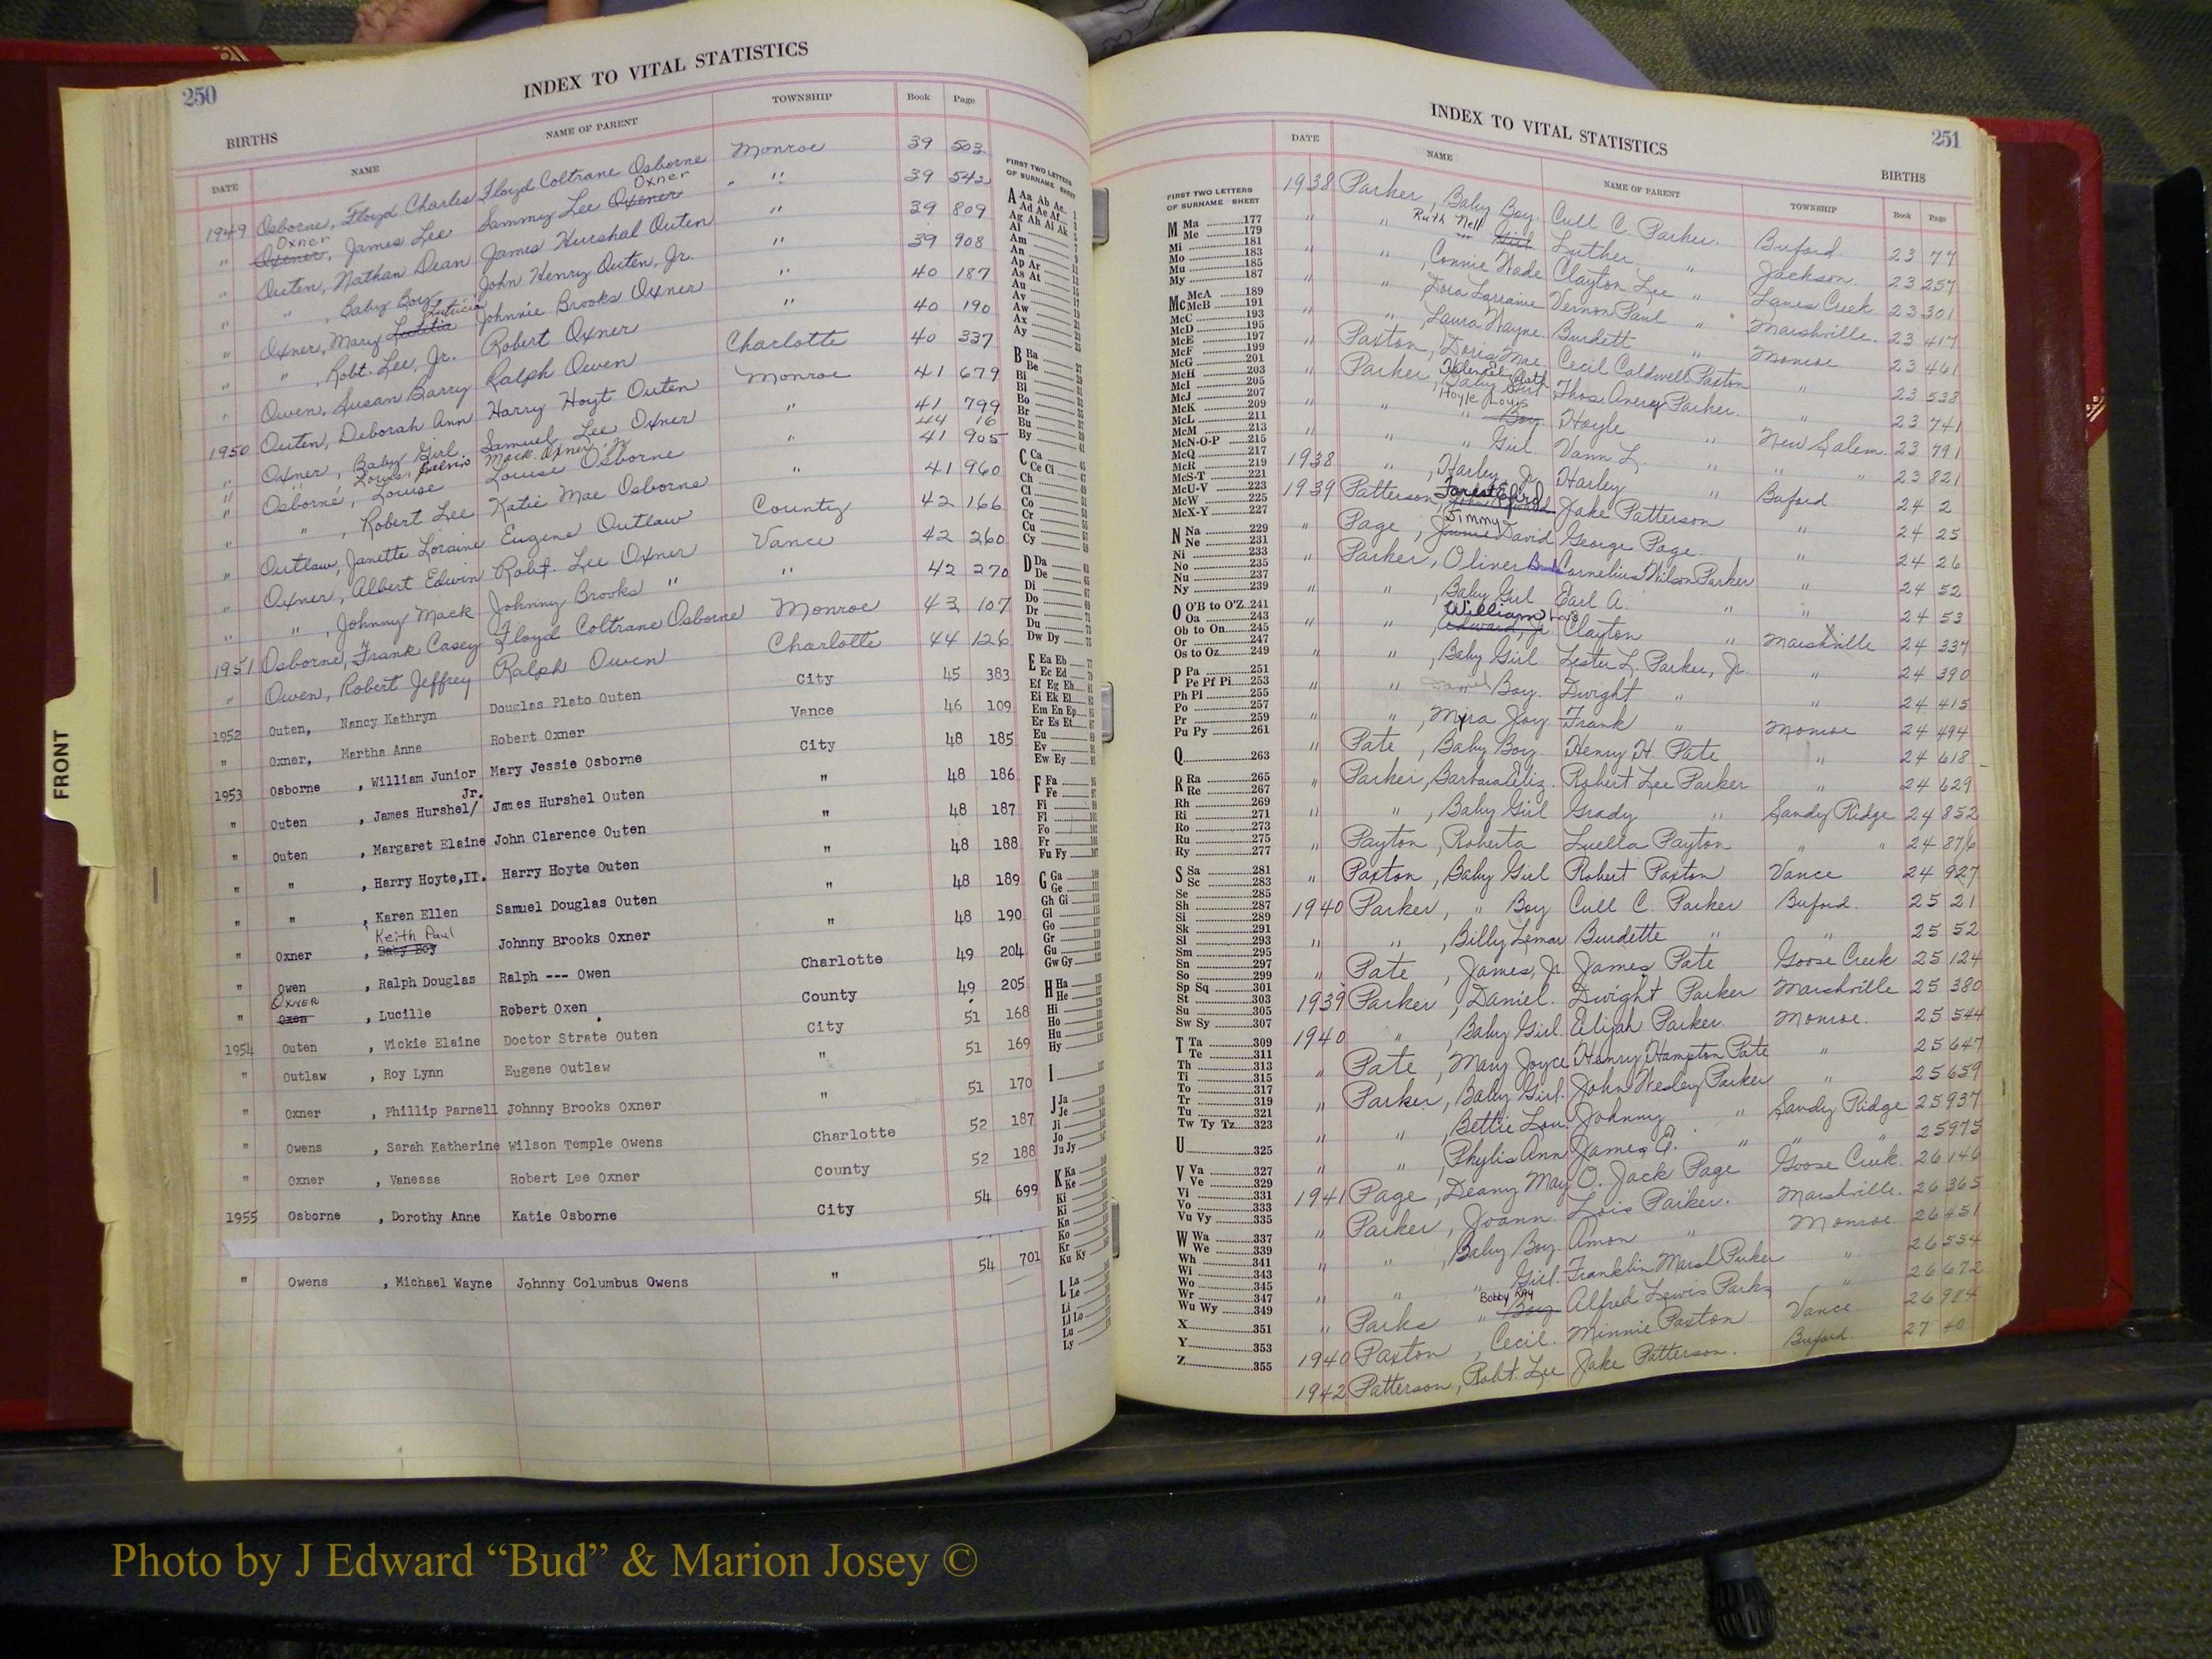 250
INDEX TO VITAL STATISTICS
BIRTHS
DATE NAME NAME OF PARENT TOWNSHIP Book Page
1949 Osborne, Floyd Charles Floyd Coltrane Osborne Monroe 39 503
Oxner Oxner
" Oxener, James Lee Sammy Lee Oxener " 39 542
" Outen, Nathan Dean James Hurshal Outen " 39 809
" " , Baby Boy John Henry Outen, Jr. " 39 908
" Oxner, Mary Letitia Johnnie Brooks Oxner " 40 187
" " , Robt. Lee, Jr. Robert Oxner " 40 190
" Owen, Susan Barry Ralph Owen Charlotte 40 337
1950 Outen, Deborah Ann Harry Hoyt Outen Monroe 41 679
" Oxner, Baby Girl Samuel Lee Oxner " 41 799
" " Louis Mack Oxner 44 16
" Osborne, Louise Louise Osborne " 41 905
" " , Robert Lee Katie Mae Osborne " 41 960
" Outlaw, Janette Loraine Eugene Outlaw County 42 166
" Oxner, Albert Edwin Robt. Lee Oxner Vance 42 260
" " , Johnny Mack Johnny Brooks " " 42 270
1951 Osborne, Frank Casey Floyd Coltrane Osborne Monroe 43 107
" Owen, Robert Jeffrey Ralph Owen Charlotte 44 126
1952 Outen, Nancy Kathryn Douglas Plato Outen City 45 383
" Oxner, Martha Anne Robert Oxner Vance 46 109
1953 Osborne , William Junior Mary Jessie Osborne City 48 185
Jr.
" Outen , James Hurshel/ James Hurshel Outen " 48 186
" Outen , Margaret Elaine John Clarence Outen " 48 187
" " , Harry Hoyte,II. Harry Hoyte Outen " 48 188
" " , Karen Ellen Samuel Douglas Outen " 48 189
Keith Paul
" Oxner , Baby Boy Johnny Brooks Oxner " 48 190
" Owen , Ralph Douglas Ralph --- Owen Charlotte 49 204
Oxner
" Oxen , Lucille Robert Oxen County 49 205
1954 Outen , Vickie Elaine Doctor Strate Outen City 51 168
" Outlaw , Roy Lynn Eugene Outlaw " 51 169
" Oxner , Phillip Parnell Johnny Brooks Oxner " 51 170
" Owens , Sarah Katherine Wilson Temple Owens Charlotte 52 187
" Oxner , Vanessa Robert Lee Oxner County 52 188
1955 Osborne , Dorothy Anne Katie Osborne City 54 699
" Owens , Michael Wayne Johnny Columbus Owens " 54 701
FRONT
FIRST TWO LETTERS
OF SURNAME SHEET
A Aa Ab Ac
Ad Ae Af
Ag Ah Ai Ak
Al
Am
An
Ap Ar
As At
Au
Av
Aw
Ax
Ay
B Ba
Be
Bi
Bl
Bo
Br
Bu
By
C Ca
Ce Ci
Ch
Cl
Co
Cr
Cu
Cy
D Da
De
Di
Do
Dr
Du
Dw Dy
E Ea Eb
Ec Ed
Ef Eg Eh
Ei Ek El
Em En Ep
Er Es Et
Eu
Ev
Ew Ey
F Fa
Fe
Fi
Fl
Fo
Fr
Fu Fy
G Ga
Ge
Gh Gi
Gl
Go
Gr
Gu
Gw Gy
H Ha
He
Hi
Ho
Hu
Hy
I
J Ja
Je
Ji
Jo
Ju Jy
K Ka
Ke
Ki
Kl
Kn
Ko
Kr
Ku Ky
L La
Le
Li
Ll Lo
Lu
Ly
INDEX TO VITAL STATISTICS
251
BIRTHS
FIRST TWO LETTERS
OF SURNAME SHEET
M Ma 177
Me 179
Mi 181
Mo 183
Mu 185
My 187
Mc McA 189
McB 191
McC 193
McD 195
McE 197
McF 199
McG 201
McH 203
McI 205
McJ 207
McK 209
McL 211
McM 213
McN-O-P 215
McQ 217
McR 219
McS-T 221
McU-V 223
McW 225
McX-Y 227
N Na 229
Ne 231
Ni 233
No 235
Nu 237
Ny 239
O O'B to O'Z 241
Oa 243
Ob to On 245
Or 247
Os to Oz 249
P Pa 251
Pe Pf Pi 253
Ph Pl 255
Po 257
Pr 259
Pu Py 261
Q 263
R Ra 265
Re 267
Rh 269
Ri 271
Ro 273
Ru 275
Ry 277
S Sa 281
Sc 283
Se 285
Sh 287
Si 289
Sk 291
Sl 293
Sm 295
Sn 297
So 299
Sp Sq 301
St 303
Su 305
Sw Sy 307
T Ta 309
Te 311
Th 313
Ti 315
To 317
Tr 319
Tu 321
Tw Ty Tz 323
U 325
V Va 327
Ve 329
Vi 331
Vo 333
Vu Vy 335
W Wa 337
We 339
Wh 341
Wi 343
Wo 345
Wr 347
Wu Wy 349
X 351
Y 353
Z 355
DATE NAME NAME OF PARENT TOWNSHIP Book Page
1938 Parker, Baby Boy. Cull C. Parker. Buford 23 77
Ruth Nell
" " Girl Luther " Jackson. 23 257
" " , Connie Wade Clayton Lee " Lanes Creek 23 301
" " , Dora Larraine Vernon Paul " Marshville. 23 417
" " , Laura Wayne Burdett " Monroe 23 461
" Paxton, Doris Mae Cecil Caldwell Paxton " 23 538
" Parker, Baby Girl Thos. Avery Parker. " 23 741
Hoyle Louis
" " " Boy Hoyle " New Salem. 23 791
" " " Girl. Vann L. " " " 23 821
1938 " , Harley, Jr. Harley " Buford 24 2
1939 Patterson, Jake Patterson " 24 25
Jimmy
" Page, David George Page. " 24 26
" Parker, Oliver Cornelius Wilson Parker " 24 52
" " , Baby Girl Earl A. " " 24 53
William
" " , Edward, Jr. Clayton " Marshville 24 337
" " , Baby Girl Lester L. Parker, Jr. " 24 390
" " Daniel Boy. Dwight " " 24 415
" " , Myra Joy Frank " Monroe 24 494
" Pate , Baby Boy. Henry H. Pate " 24 618
" Parker, Barbara Eliz. Robert Lee Parker " 24 629
" " , Baby Girl Grady " Sandy Ridge 24 852
" Payton , Roberta Luella Payton " " 24 876
" Paxton , Baby Girl Robert Paxton Vance 24 927
1940 Parker, " Boy Cull C. Parker Buford. 25 21
" " , Billy Lemar Burdette " " 25 52
" Pate , James, Jr. James Pate Goose Creek 25 124
1939 Parker, Daniel. Dwight Parker Marshville 25 380
1940 " , Baby Girl. Elijah Parker. Monroe. 25 544
" Pate , Mary Joyce Henry Hampton Pate " 25 647
" Parker, Baby Girl. John Wesley Parker " 25 659
" " , Bettie Lou Johnny " Sandy Ridge 25 937
" " , Phylis Ann James E. " " " 25 975
1941 Page , Deany May O. Jack Page Goose Creek. 26 146
" Parker, Joann. Lois Parker. Marshville. 26 365
" " , Baby Boy. Amon " Monroe 26 451
" " " Girl. Franklin Marsl Parker " 26 554
Bobby Ray
" Parks " Boy Alfred Lewis Parks " 26 672
1940 Paxton , Cecil. Minnie Paxton Vance 26 984
1942 Patterson, Robt. Lee Jake Patterson. Buford. 27 40
Photo by J Edward “Bud” & Marion Josey ©